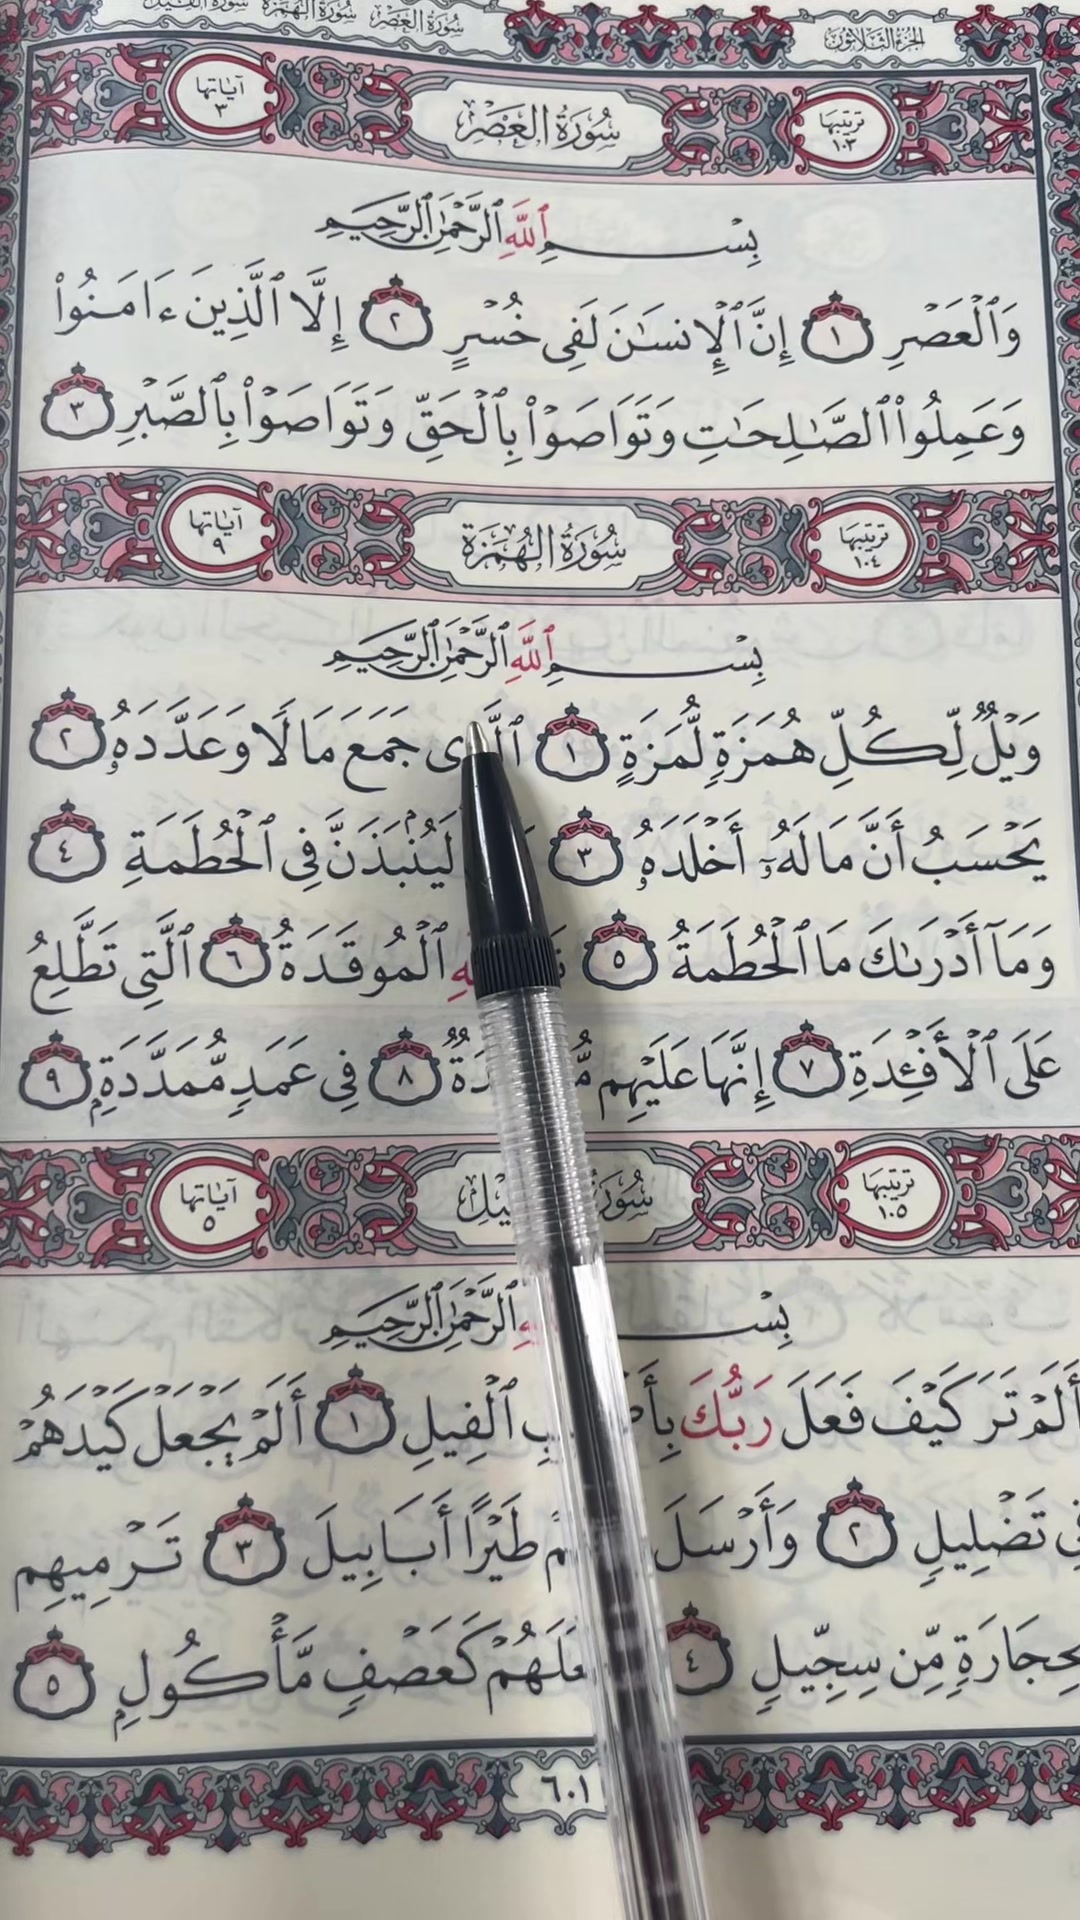 سُورَةُ العَصْرِ سُورَةُ الهُمَزَةِ سُورَةُ الفِيلِ
الجُزْءُ الثَّلَاثُونَ
تَرْتِيبُهَا ١٠٣ سُورَةُ العَصْرِ آيَاتُهَا ٣
بِسْمِ ٱللَّهِ ٱلرَّحْمَٰنِ ٱلرَّحِيمِ
وَٱلْعَصْرِ ١ إِنَّ ٱلْإِنسَٰنَ لَفِى خُسْرٍ ٢ إِلَّا ٱلَّذِينَ ءَامَنُوا۟
وَعَمِلُوا۟ ٱلصَّٰلِحَٰتِ وَتَوَاصَوْا۟ بِٱلْحَقِّ وَتَوَاصَوْا۟ بِٱلصَّبْرِ ٣
تَرْتِيبُهَا ١٠٤ سُورَةُ الهُمَزَةِ آيَاتُهَا ٩
بِسْمِ ٱللَّهِ ٱلرَّحْمَٰنِ ٱلرَّحِيمِ
وَيْلٌ لِّكُلِّ هُمَزَةٍ لُّمَزَةٍ ١ ٱلَّذِى جَمَعَ مَالًا وَعَدَّدَهُۥ ٢
يَحْسَبُ أَنَّ مَالَهُۥٓ أَخْلَدَهُۥ ٣ لَيُنۢبَذَنَّ فِى ٱلْحُطَمَةِ ٤
وَمَآ أَدْرَىٰكَ مَا ٱلْحُطَمَةُ ٥ ٱلْمُوقَدَةُ ٦ ٱلَّتِى تَطَّلِعُ
عَلَى ٱلْأَفْـِٔدَةِ ٧ إِنَّهَا عَلَيْهِم ٨ فِى عَمَدٍ مُّمَدَّدَةٍۭ ٩
تَرْتِيبُهَا ١٠٥ سُورَةُ آيَاتُهَا ٥
بِسْمِ ٱلرَّحْمَٰنِ ٱلرَّحِيمِ
أَلَمْ تَرَ كَيْفَ فَعَلَ رَبُّكَ ٱلْفِيلِ ١ أَلَمْ يَجْعَلْ كَيْدَهُمْ
فِى تَضْلِيلٍ ٢ وَأَرْسَلَ طَيْرًا أَبَابِيلَ ٣ تَرْمِيهِم
بِحِجَارَةٍ مِّن سِجِّيلٍ ٤ كَعَصْفٍ مَّأْكُولٍۭ ٥
٦٠١